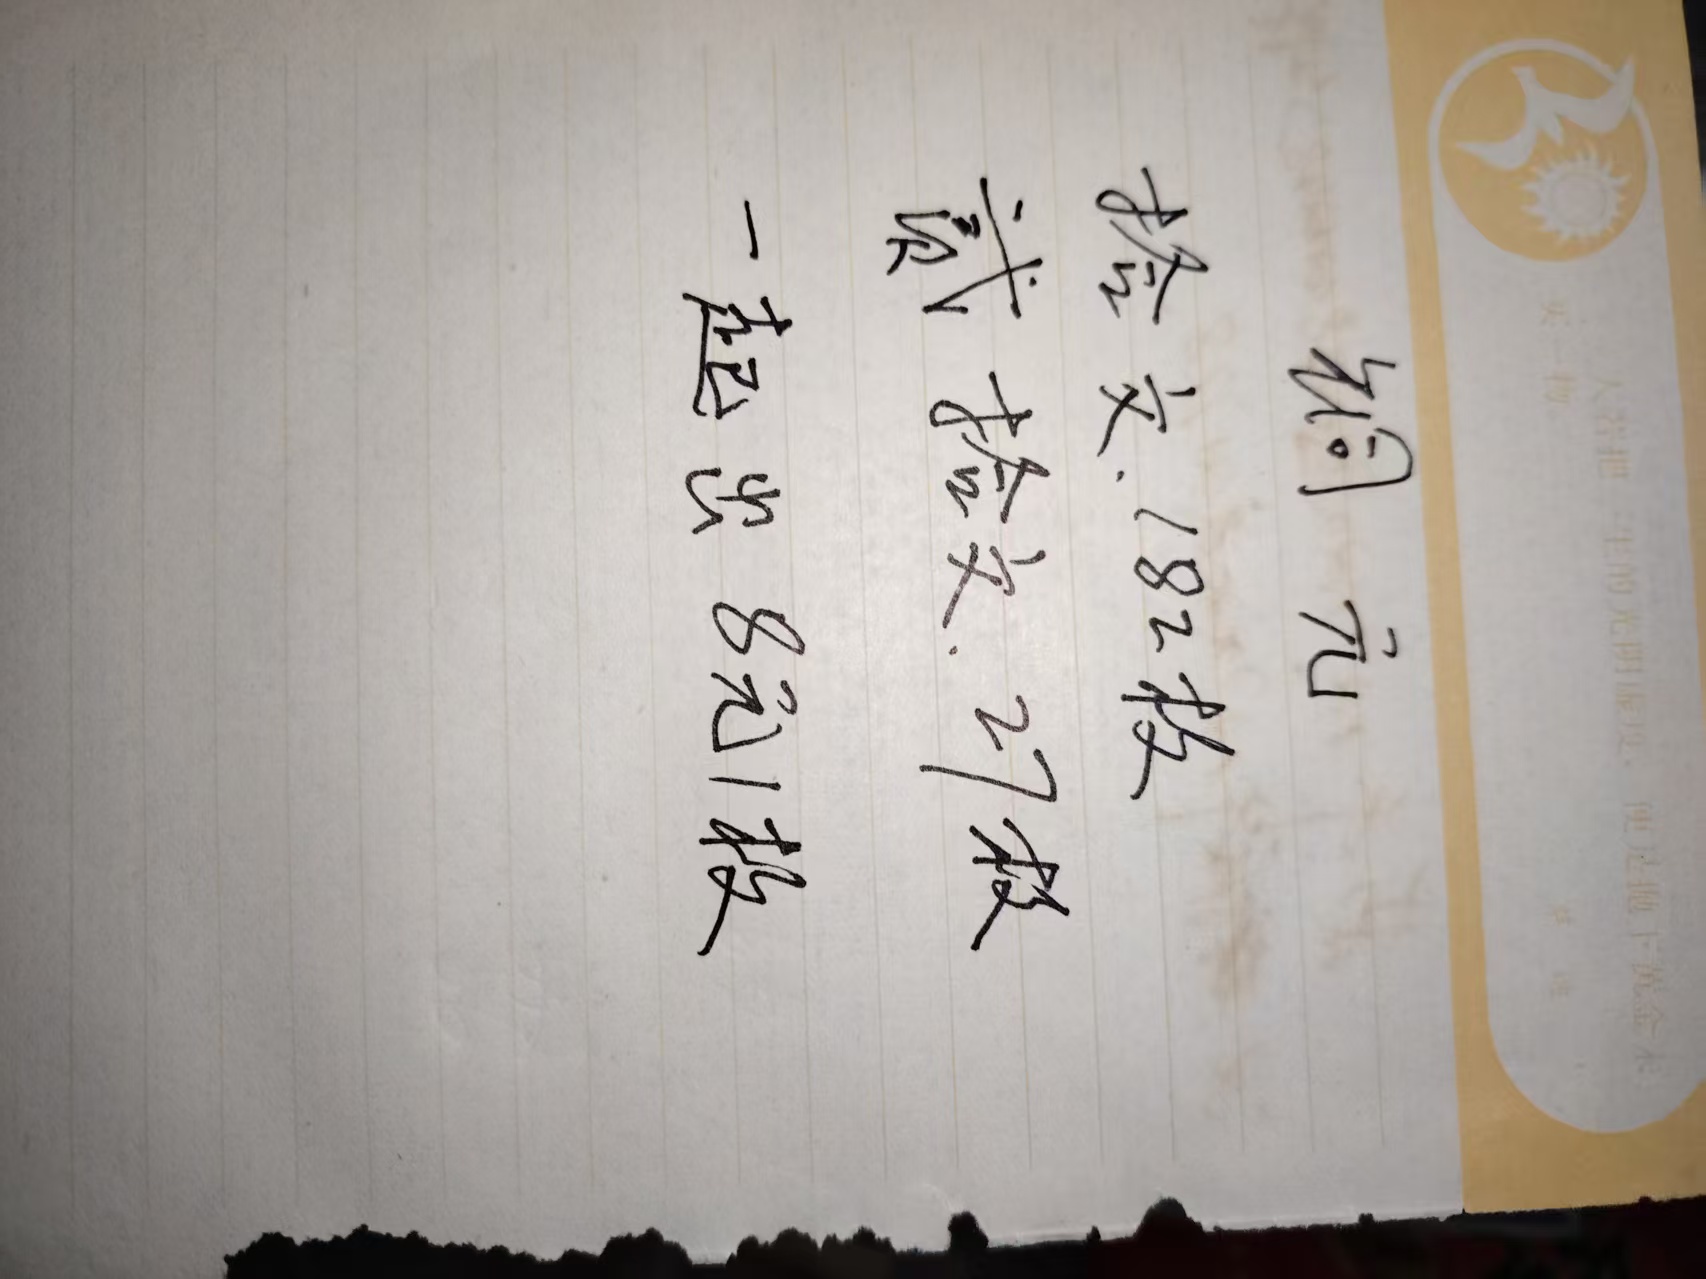 铜元
拾文.182枚
贰拾文.27枚
一起出8元1枚